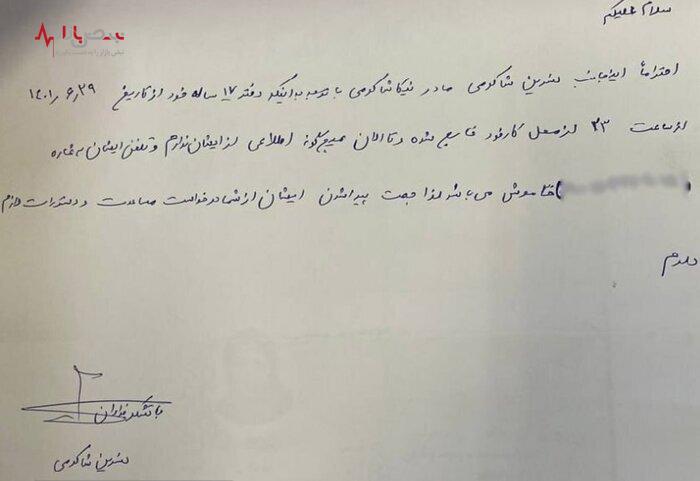 نبض بازار
نبض بازار را به دست بگیرید
سلام علیکم
احتراماً اینجانب نسرین شاکرمی مادر نیکا شاکرمی با توجه به اینکه دختر ۱۷ ساله خود از تاریخ ۱۴۰۱٫۶٫۲۹
از ساعت ۲۳ از محل کار خود خارج شده و تا الان هیچ گونه اطلاعی از ایشان ندارم و تلفن ایشان به شماره
خاموش می باشد لذا جهت پیدا شدن ایشان از شما درخواست مساعدت و دستورات لازم
دارم
با تشکر فراوان
نسرین شاکرمی